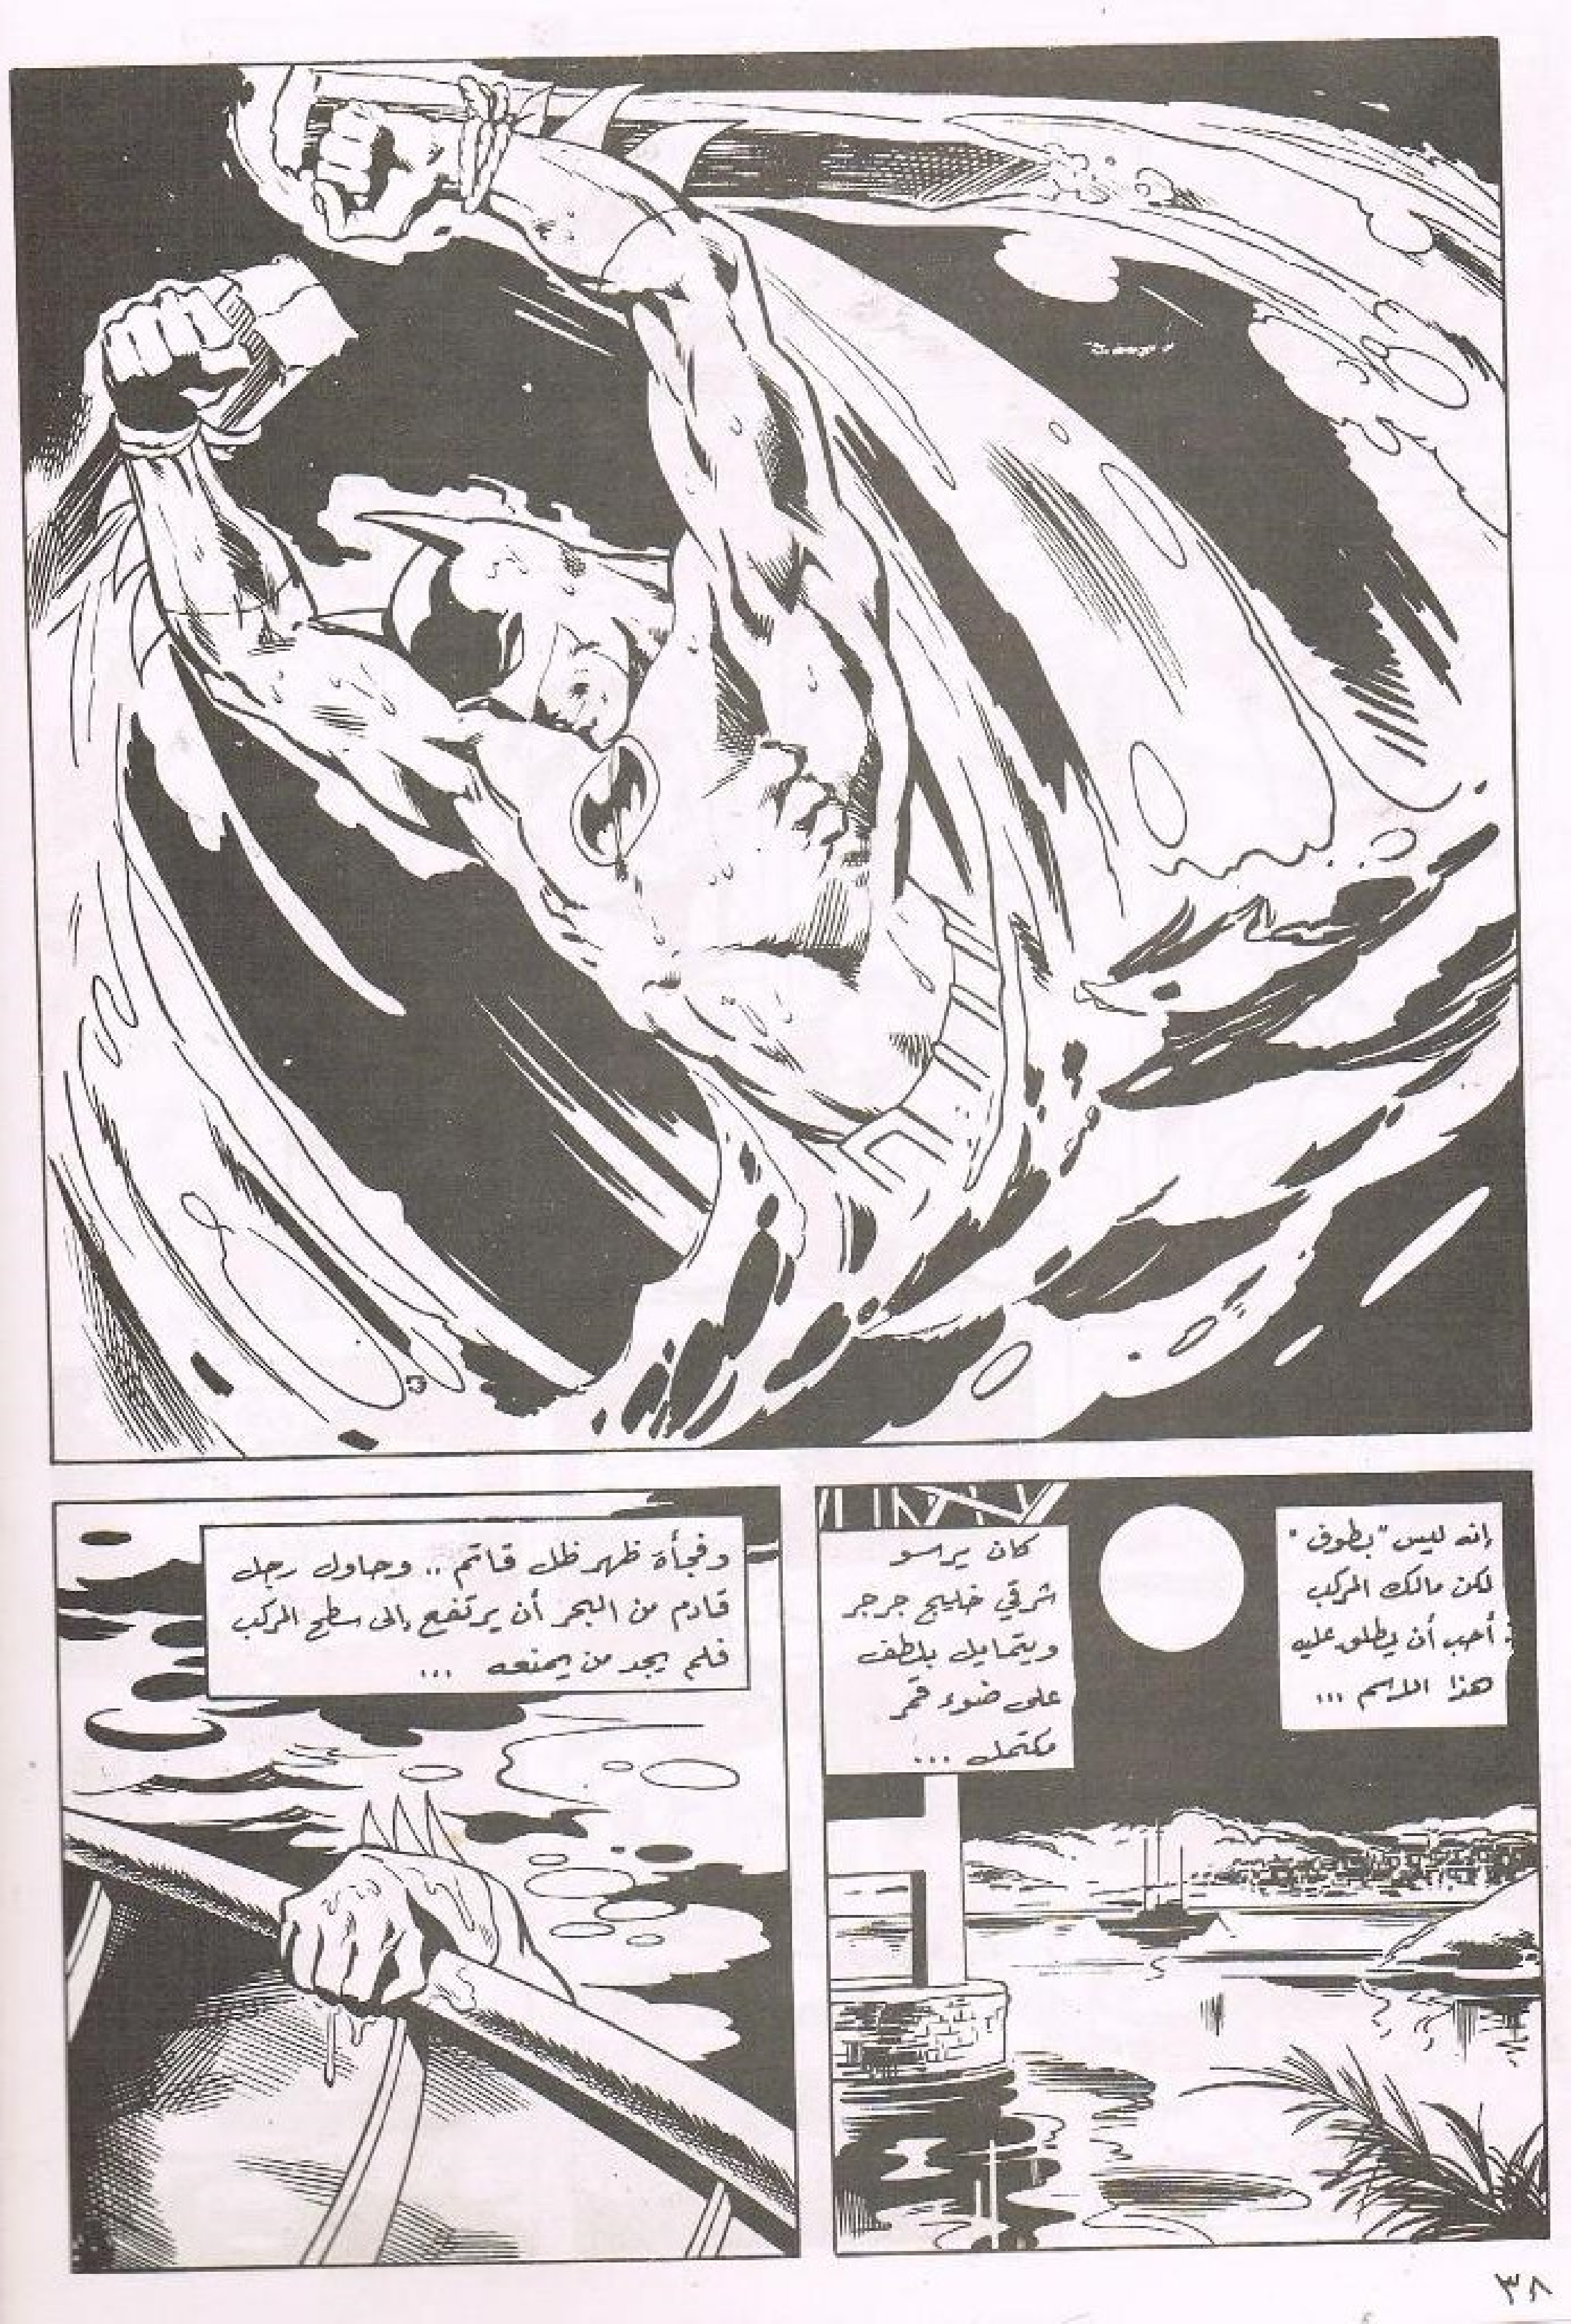 إنه ليس "بطوف"
لكن مالك المركب
أحب أن يطلق عليه
هذا الاسم ...
كان يرسو
شرقي خليج جرجر
ويتمايل بلطف
على ضوء قمر
مكتمل ...
وفجأة ظهر ظل قاتم .. وحاول رجل
قادم من البحر أن يرتفع إلى سطح المركب
فلم يجد من يمنعه ...
٣٨